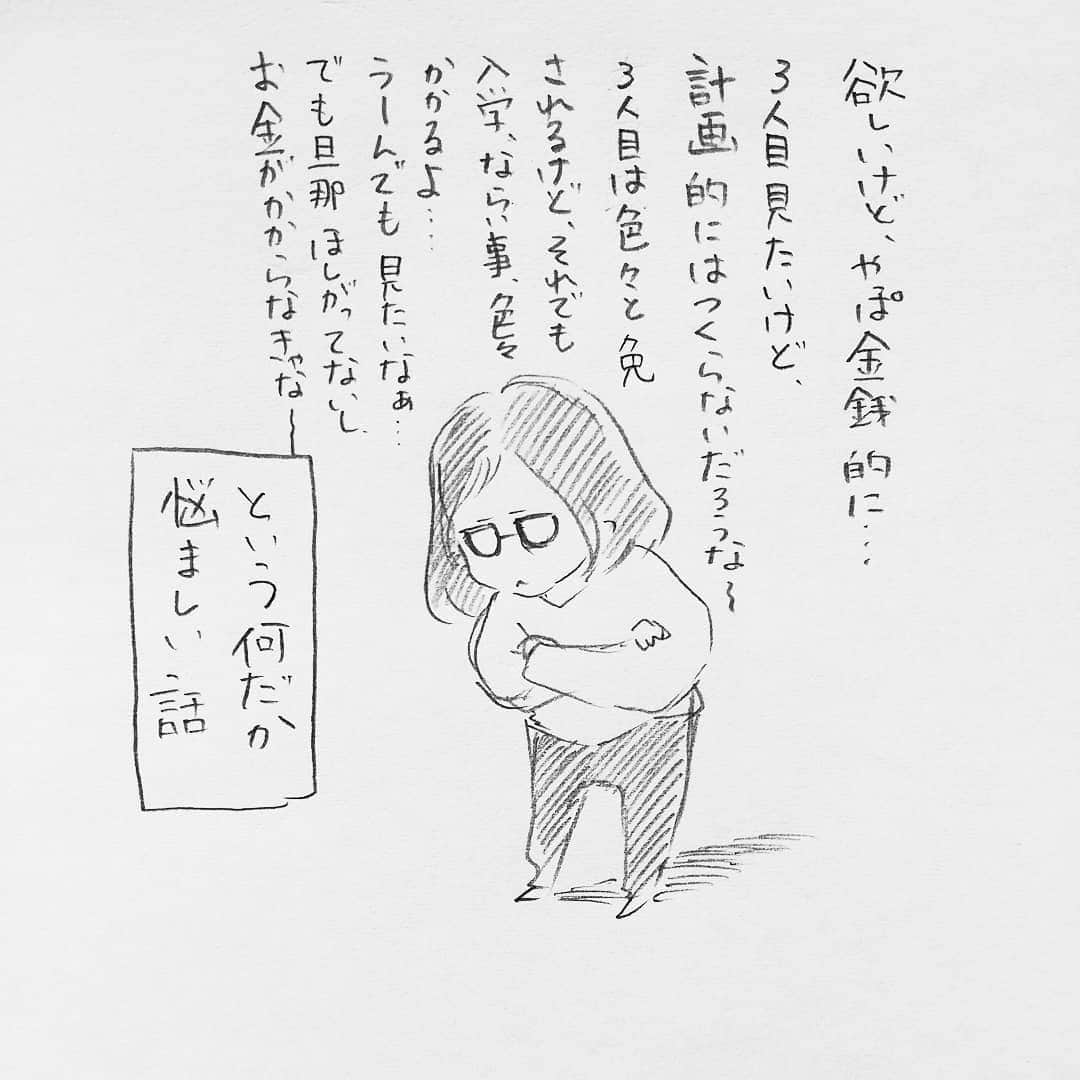 欲しいけど、やぱ金銭的に…
3人目見たいけど、
計画的にはつくらないだろうな〜
3人目は色々と免
されるけど、それでも
入学、ならい事、色々
かかるよ…
うーんでも見たいなぁ…
でも旦那ほしがってないし、
お金がかからなきゃな〜
という何だか
悩ましい話